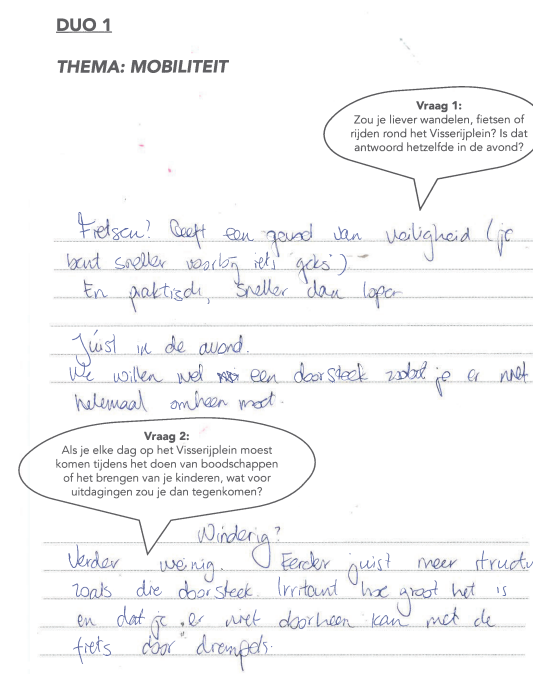 DUO 1
THEMA: MOBILITEIT
Vraag 1:
Zou je liever wandelen, fietsen of
rijden rond het Visserijplein? Is dat
antwoord hetzelfde in de avond?
Fietsen? Geeft een gevoel van veiligheid (je
bent sneller voorbij iets 'geks')
En praktisch, sneller dan lopen
Júist in de avond.
We willen wel een doorsteek zodat je er niet
helemaal omheen moet.
Vraag 2:
Als je elke dag op het Visserijplein moest
komen tijdens het doen van boodschappen
of het brengen van je kinderen, wat voor
uitdagingen zou je dan tegenkomen?
Winderig?
Verder weinig. Eerder juist meer structu
zoals die doorsteek. Irritant hoe groot het is
en dat je er niet doorheen kan met de
fiets door drempels.